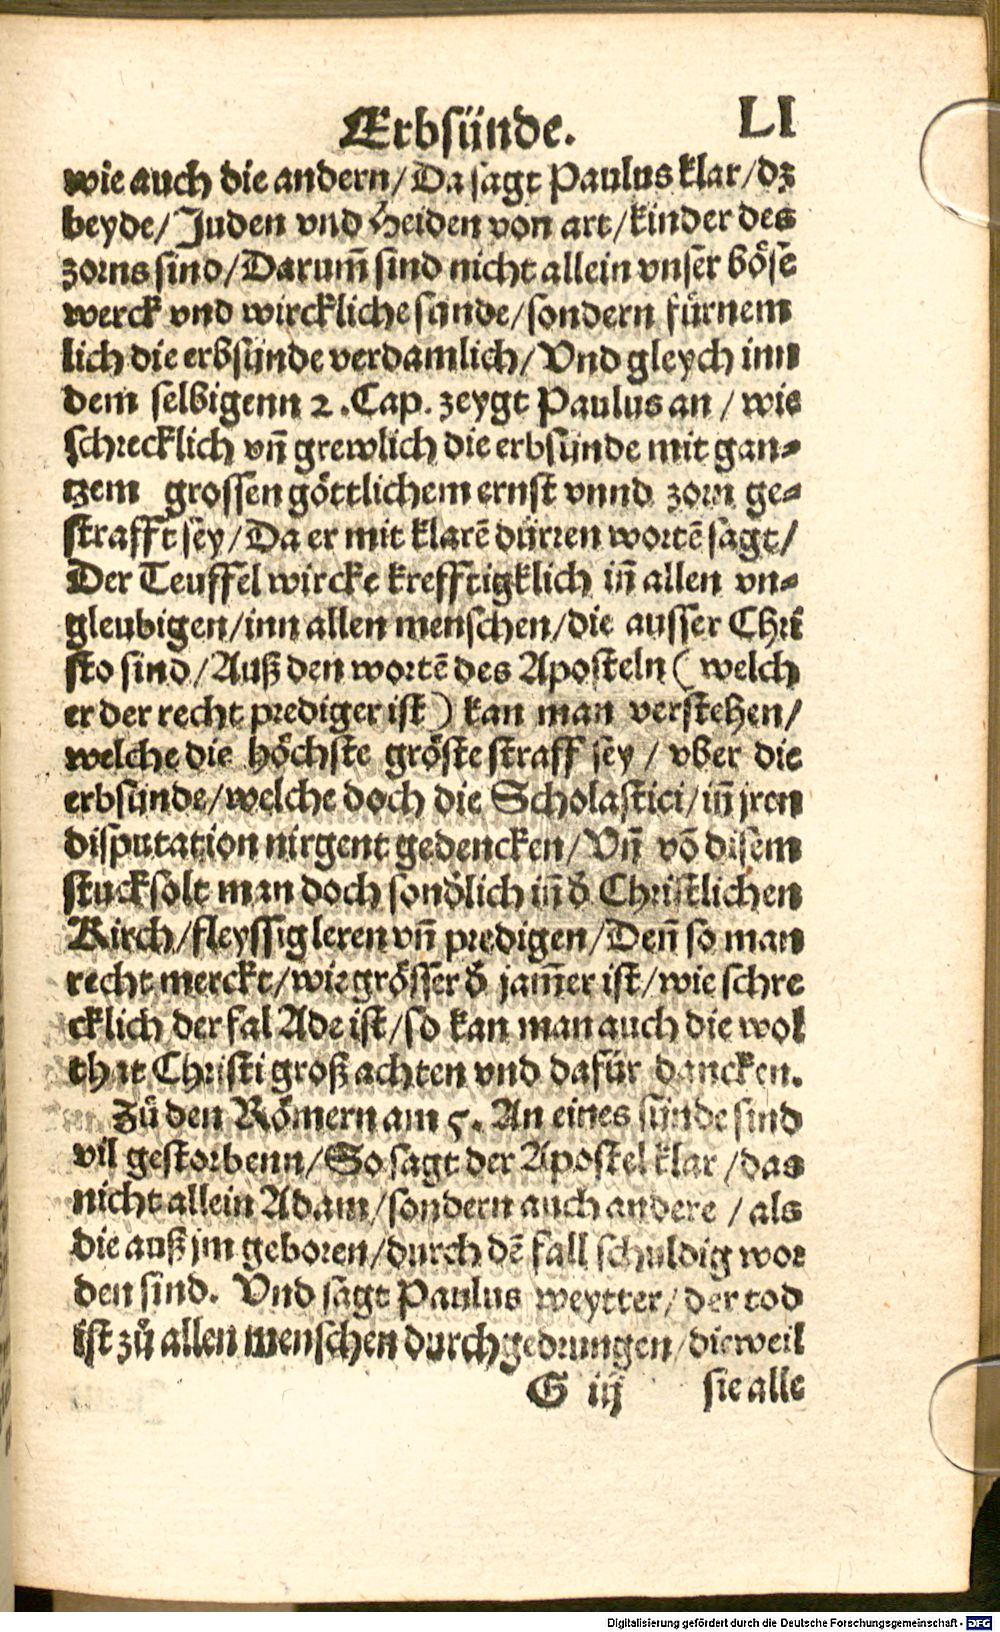 Erbsünde. LI
wie auch die andern/Da sagt Paulus klar/dz
beyde/Juden vnd Heiden von art/kinder des
zorns sind/Darum̃ sind nicht allein vnser böse
werck vnd wirckliche sünde/sondern fürnem
lich die erbsünde verdamlich/Vnd gleych inn
dem selbigenn 2.Cap. zeygt Paulus an / wie
schrecklich vñ grewlich die erbsünde mit gan⸗
tzem grossen göttlichem ernst vnnd zorn ge⸗
strafft sey/Da er mit klarẽ dürren wortẽ sagt/
Der Teuffel wircke krefftigklich iñ allen vn⸗
gleubigen/inn allen menschen/die ausser Chri
sto sind/Auß den wortẽ des Aposteln ( welch
er der recht prediger ist ) kan man verstehen/
welche die höchste gröste straff sey / vber die
erbsünde/welche doch die Scholastici/iñ jren
disputation nirgent gedencken/Vñ võ disem
stuck solt man doch sonðlich iñ ð Christlichen
Kirch/fleyssig leren vñ predigen/Deñ so man
recht merckt/wie grösser ð jam̃er ist/wie schre
cklich der fal Ade ist/so kan man auch die wol
that Christi groß achten vnd dafür dancken.
Zů den Römern am 5. An eines sünde sind
vil gestorbenn/So sagt der Apostel klar /das
nicht allein Adam/sondern auch andere / als
die auß jm geboren/durch dẽ fall schuldig wor
den sind. Vnd sagt Paulus weytter/der tod
ist zů allen menschen durchgedrungen/dieweil
G iij sie alle
Digitalisierung gefördert durch die Deutsche Forschungsgemeinschaft - DFG